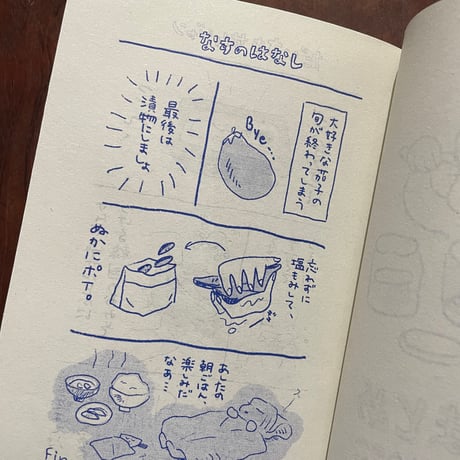 なすのはなし
大好きな茄子の
旬が終わってしまう
Bye...
最後は
漬物にしましょ
忘れずに
塩もみして、
ぬかにポイ。
あしたの
朝ごはん、
楽しみだ
なあ…
Fin